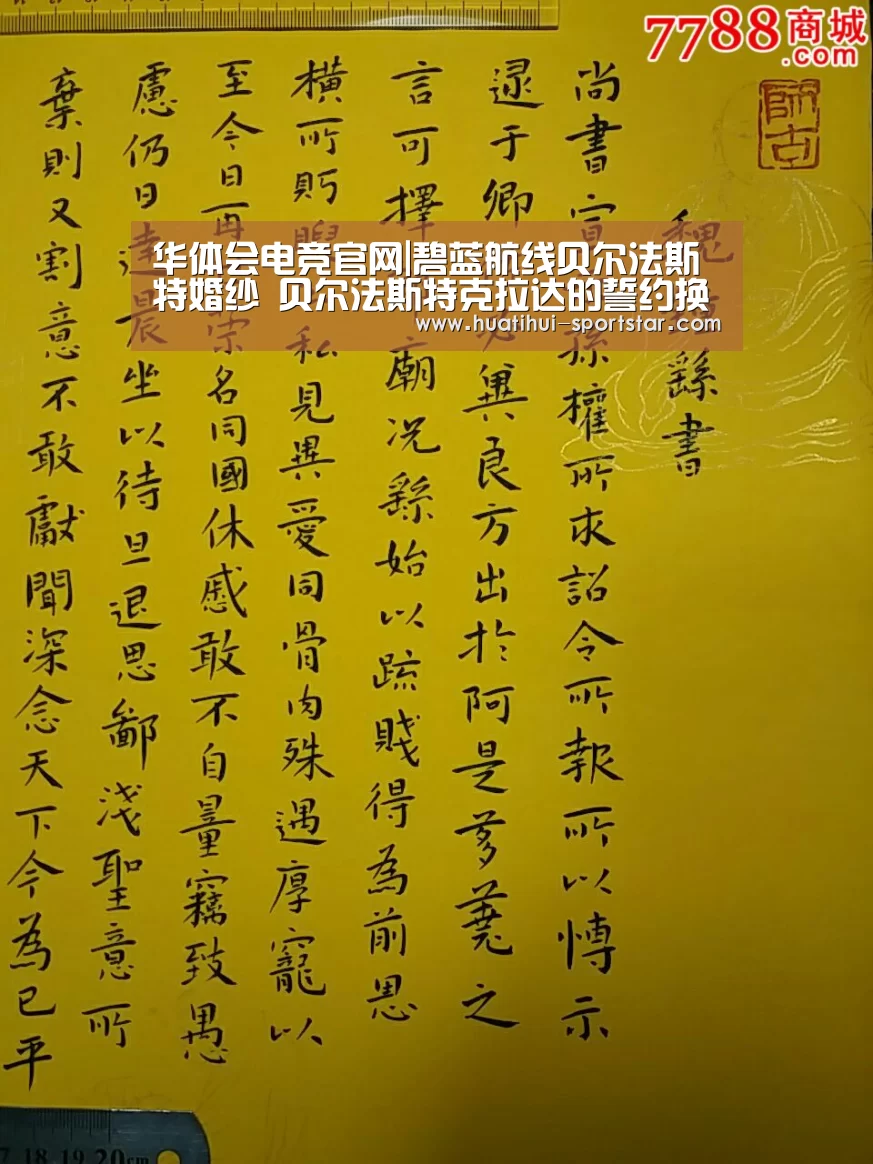 7788商城
.com
師古
魏鍾繇書
尚書宣
孫權所求詔令所報所以博示
逯于卿
必異良方出於阿是芻蕘之
言可擇
廟况繇始以疏賤得為前恩
橫所
私見異愛同骨肉殊遇厚寵以
至今日再
榮名同國休慼敢不自量竊致愚
慮仍日達晨坐以待旦退思鄙淺聖意所
棄則又割意不敢獻聞深念天下今為已平
华体会电竞官网|碧蓝航线贝尔法斯
特婚纱 贝尔法斯特克拉达的誓约换
www.huatihui-sportstar.com
17 18 19 20cm